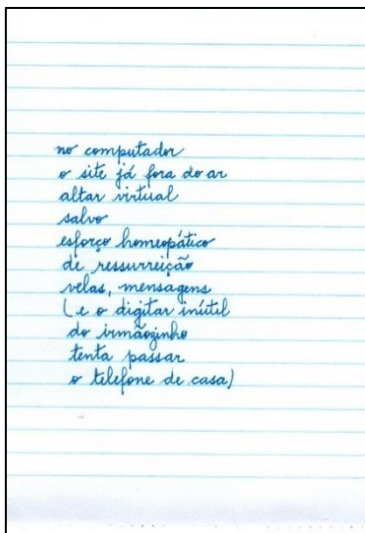 no computador
o site já fora do ar
altar virtual
salvo
esforço homeopático
de ressurreição
velas, mensagens
(e o digitar inútil
do irmãozinho
tenta passar
o telefone de casa)